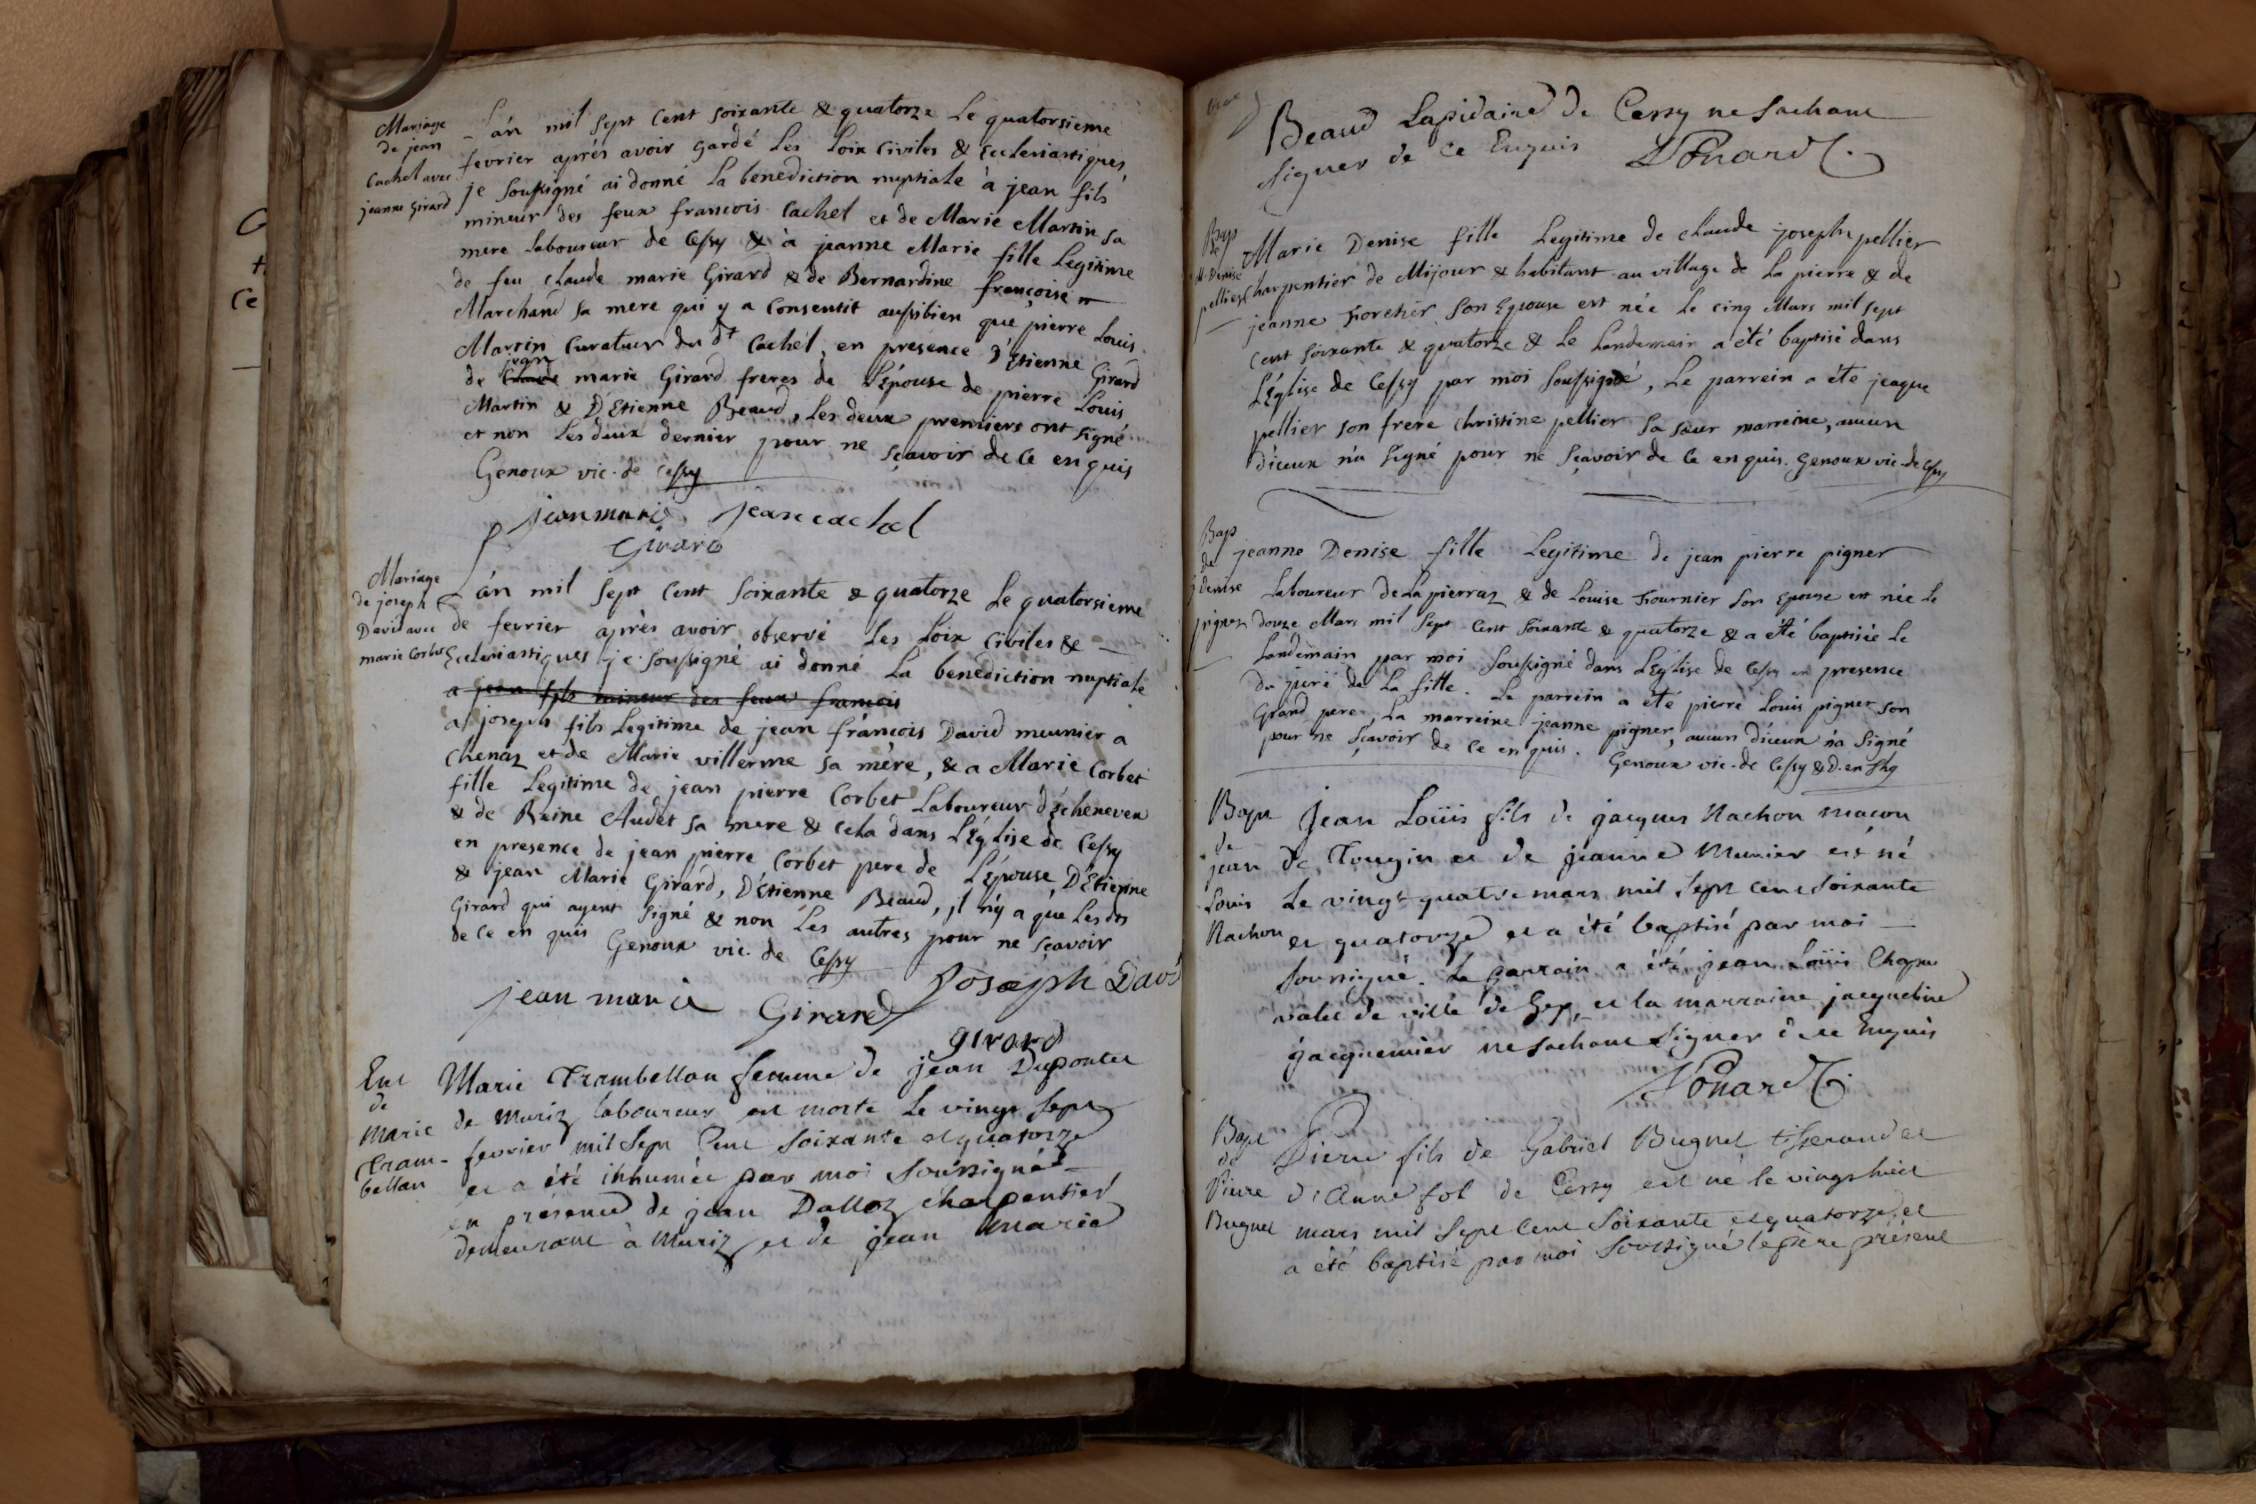 Mariage
de jean
Cachel avec
jeanne Girard
L'an mil sept Cent soixante & quatorze Le quatorsieme
fevrier après avoir gardé Les Loix Civiles & Ecclesiastiques,
je soussigné ai donné La benediction nuptiale à jean fils
mineur des feux francois Cachel et de Marie Martin sa
mere Laboureur de Cessy & à jeanne Marie fille Legitime
de feu claude marie Girard & de Bernardine françoise
Marchand sa mere qui y a Consentit aussibien que pierre Louis
Martin Curateur du dt Cachel, en presence D'Etienne Girard
de jean marie Girard freres de L'Épouse de pierre Louis
Martin & D'Etienne Beaud, Les deux premiers ont signé
et non Les deux dernier pour ne sçavoir de Ce enquis
Genoux vic. de Cessy
jean marie jean cachel
Girard
Mariage
de joseph
David avec
marie Corbet
L'an mil sept Cent soixante & quatorze Le quatorsieme
de fevrier après avoir observé Les Loix Civiles &
Ecclesiastiques je soussigné ai donné La benediction nuptiale
a jean fils mineur des feux francois
a joseph fils Legitime de jean francois David meunier a
Chenaz et de Marie villerme sa mère, & a Marie Corbet
fille Legitime de jean pierre Corbet Laboureur d'écheneven
& de Reine Audet sa mere & Cela dans L'Église de Cessy
en presence de jean pierre Corbet pere de L'Épouse, D'Etienne
& jean Marie Girard, D'Etienne Beaud, il n'y a que Les dts
Girard qui ayent signé & non Les autres pour ne sçavoir
de Ce en quis Genoux vic. de Cessy
Joseph David
jean marie Girard
girard
Ent
de
Marie
Tram-
bellan
Marie Trambellan femme de jean Dupontet
de Muriz laboureur est morte Le vingt sept
fevrier mil sept Cent soixante et quatorze
et a été inhumée par moi soussigné
en présence de jean Dalloz charpentier
demeurant à Muriz et de jean marie
Beaud Lapidaire de Cessy ne sachant
signer de Ce Enquis
Bap
de
M. Denise
pellier
Marie Denise fille Legitime de claude joseph pellier
Charpentier de Mijour & habitant au village de La pierre & de
jeanne Forestier son Epouse est née Le cinq Mars mil sept
Cent soixante & quatorze & Le Landemain a été baptisé dans
L'Église de Cessy par moi soussigné, Le parrein a été jeaque
pellier son frere christine pellier sa sœur marreine, aucun
d'iceux n'a signé pour ne sçavoir de Ce en quis. Genoux vic. de Cessy
Bap
de
j denise
pigner
jeanne Denise fille Legitime de jean pierre pigner
Laboureur de La pierraz & de Louise Fournier son Epouse est née Le
douze Mars mil sept Cent soixante & quatorze & a été baptisée Le
Landemain par moi soussigné dans L'Église de Cessy en presence
du juré de La fille. Le parrein a été pierre Louis pigner son
Grand pere, La marreine jeanne pigner, aucun d'iceux n'a signé
pour ne sçavoir de Ce en quis.
Genoux vic. de Cessy
Bapt
de
jean
Louis
Nachon
Jean Loüis fils de jacques Nachon maçon
de Tougin et de jeanne Munier est né
Le vingt quatre mars mil sept cent soixante
et quatorze et a été baptisé par moi
soussigné. Le parrain a été jean Loüis
valet de ville de Gex, et la marraine jacqueline
jacquemier ne sachant signer de ce Enquis
Bapt
de
Pierre
Bugnet
Pierre fils de Gabriel Bugnet tisserand et
d'Anne fol de Cessy est né le vingt huit
mars mil sept Cent soixante et quatorze et
a été baptisé par moi soussigné le père présent